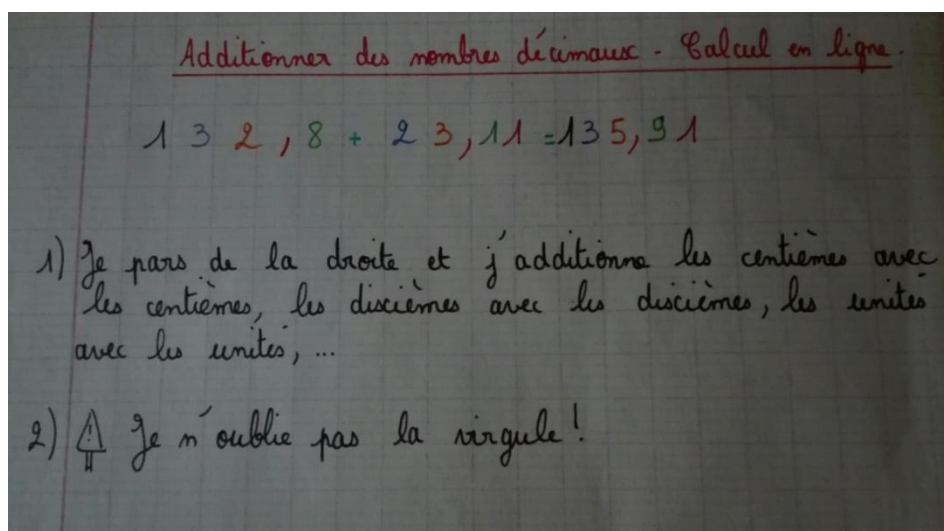 Additionner des nombres décimaux - Calcul en ligne.
132,8 + 23,11 = 135,91
1) Je pars de la droite et j'additionne les centièmes avec
les centièmes, les dixièmes avec les dixièmes, les unités
avec les unités, ...
2) Je n'oublie pas la virgule !